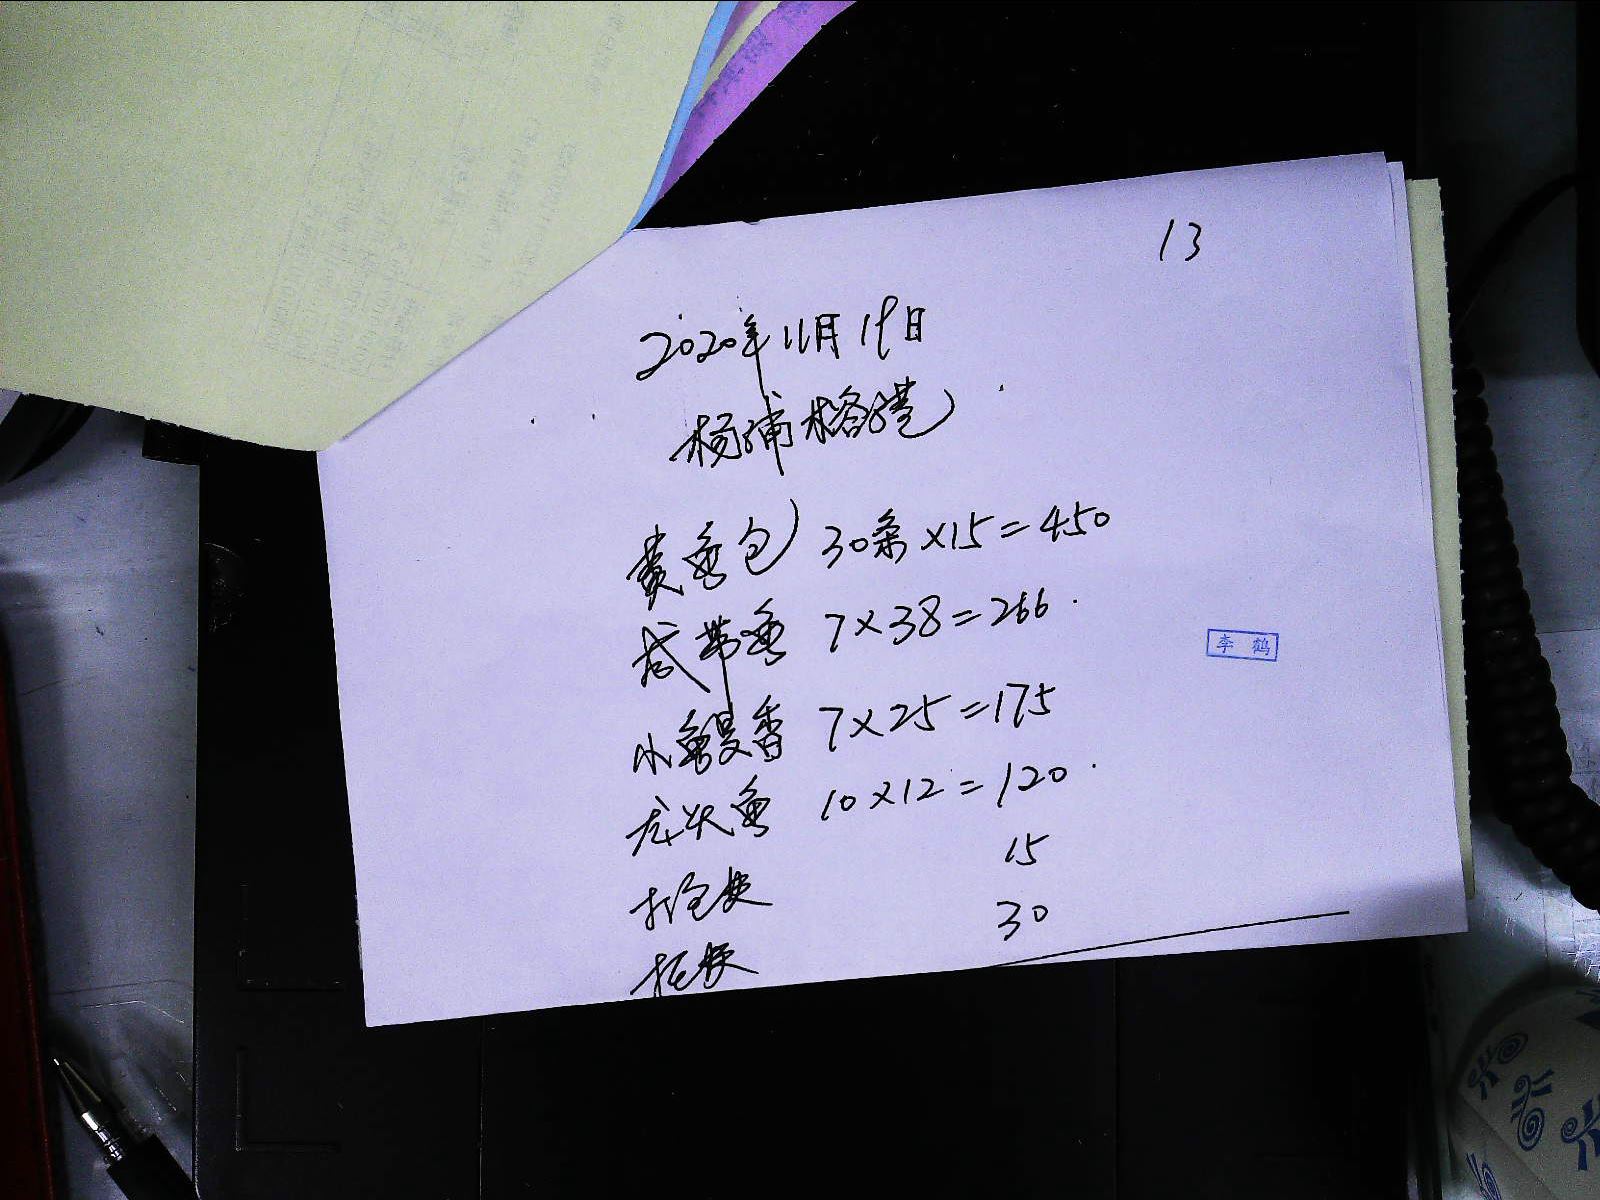 13
2020年11月19日
杨浦榕港
黄鱼包 30条×15=450
咸带鱼 7×38=266
小鳗香 7×25=175
李鹤
龙头鱼 10×12=120
打包费 15
托费 30